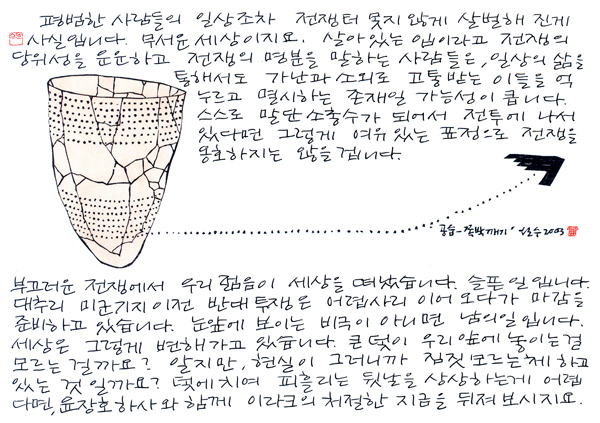 평범한 사람들의 일상조차 전쟁터 못지 않게 살벌해 진게
사실입니다. 무서운 세상이지요. 살아있는 입이라고 전쟁의
당위성을 운운하고 전쟁의 명분을 말하는 사람들은, 일상의 삶을
통해서도 가난과 소외로 고통받는 이들을 억
누르고 멸시하는 존재일 가능성이 큽니다.
스스로 말단 소총수가 되어서 전투에 나서
있다면 그렇게 여유있는 표정으로 전쟁을
옹호하지는 않을 겁니다.
공습-쪽박깨기 철수 2003
부끄러운 전쟁에서 우리 젊음이 세상을 떠났습니다. 슬픈 일입니다.
대추리 미군기지 이전 반대 투쟁은 어렵사리 이어오다가 마감을
준비하고 있습니다. 눈앞에 보이는 비극이 아니면 남의 일입니다.
세상은 그렇게 변해가고 있습니다. 큰 덫이 우리 앞에 놓이는걸
모르는 걸까요? 알지만, 현실이 그러니까 짐짓 모르는체 하고
있는 것일까요? 덫에 치여 피흘리는 뒷날을 상상하는게 어렵
다면, 윤장호하사와 함께 이라크의 처절한 지금을 뒤져 보시지요.